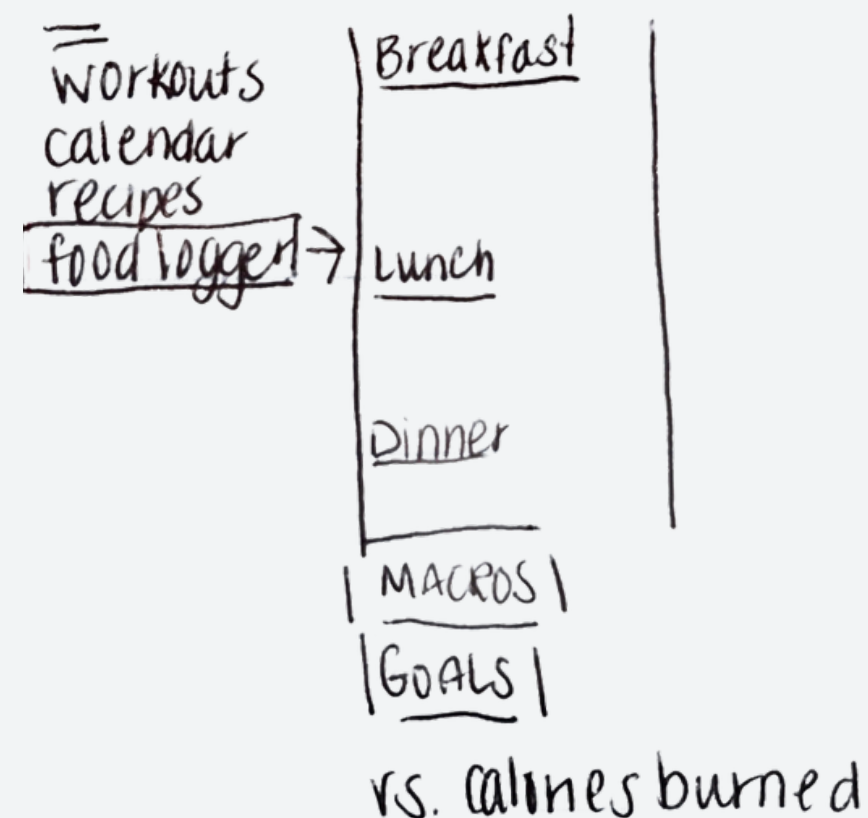 workouts
calendar
recipes
food logger →
Breakfast
Lunch
Dinner
MACROS
GOALS
vs. calories burned